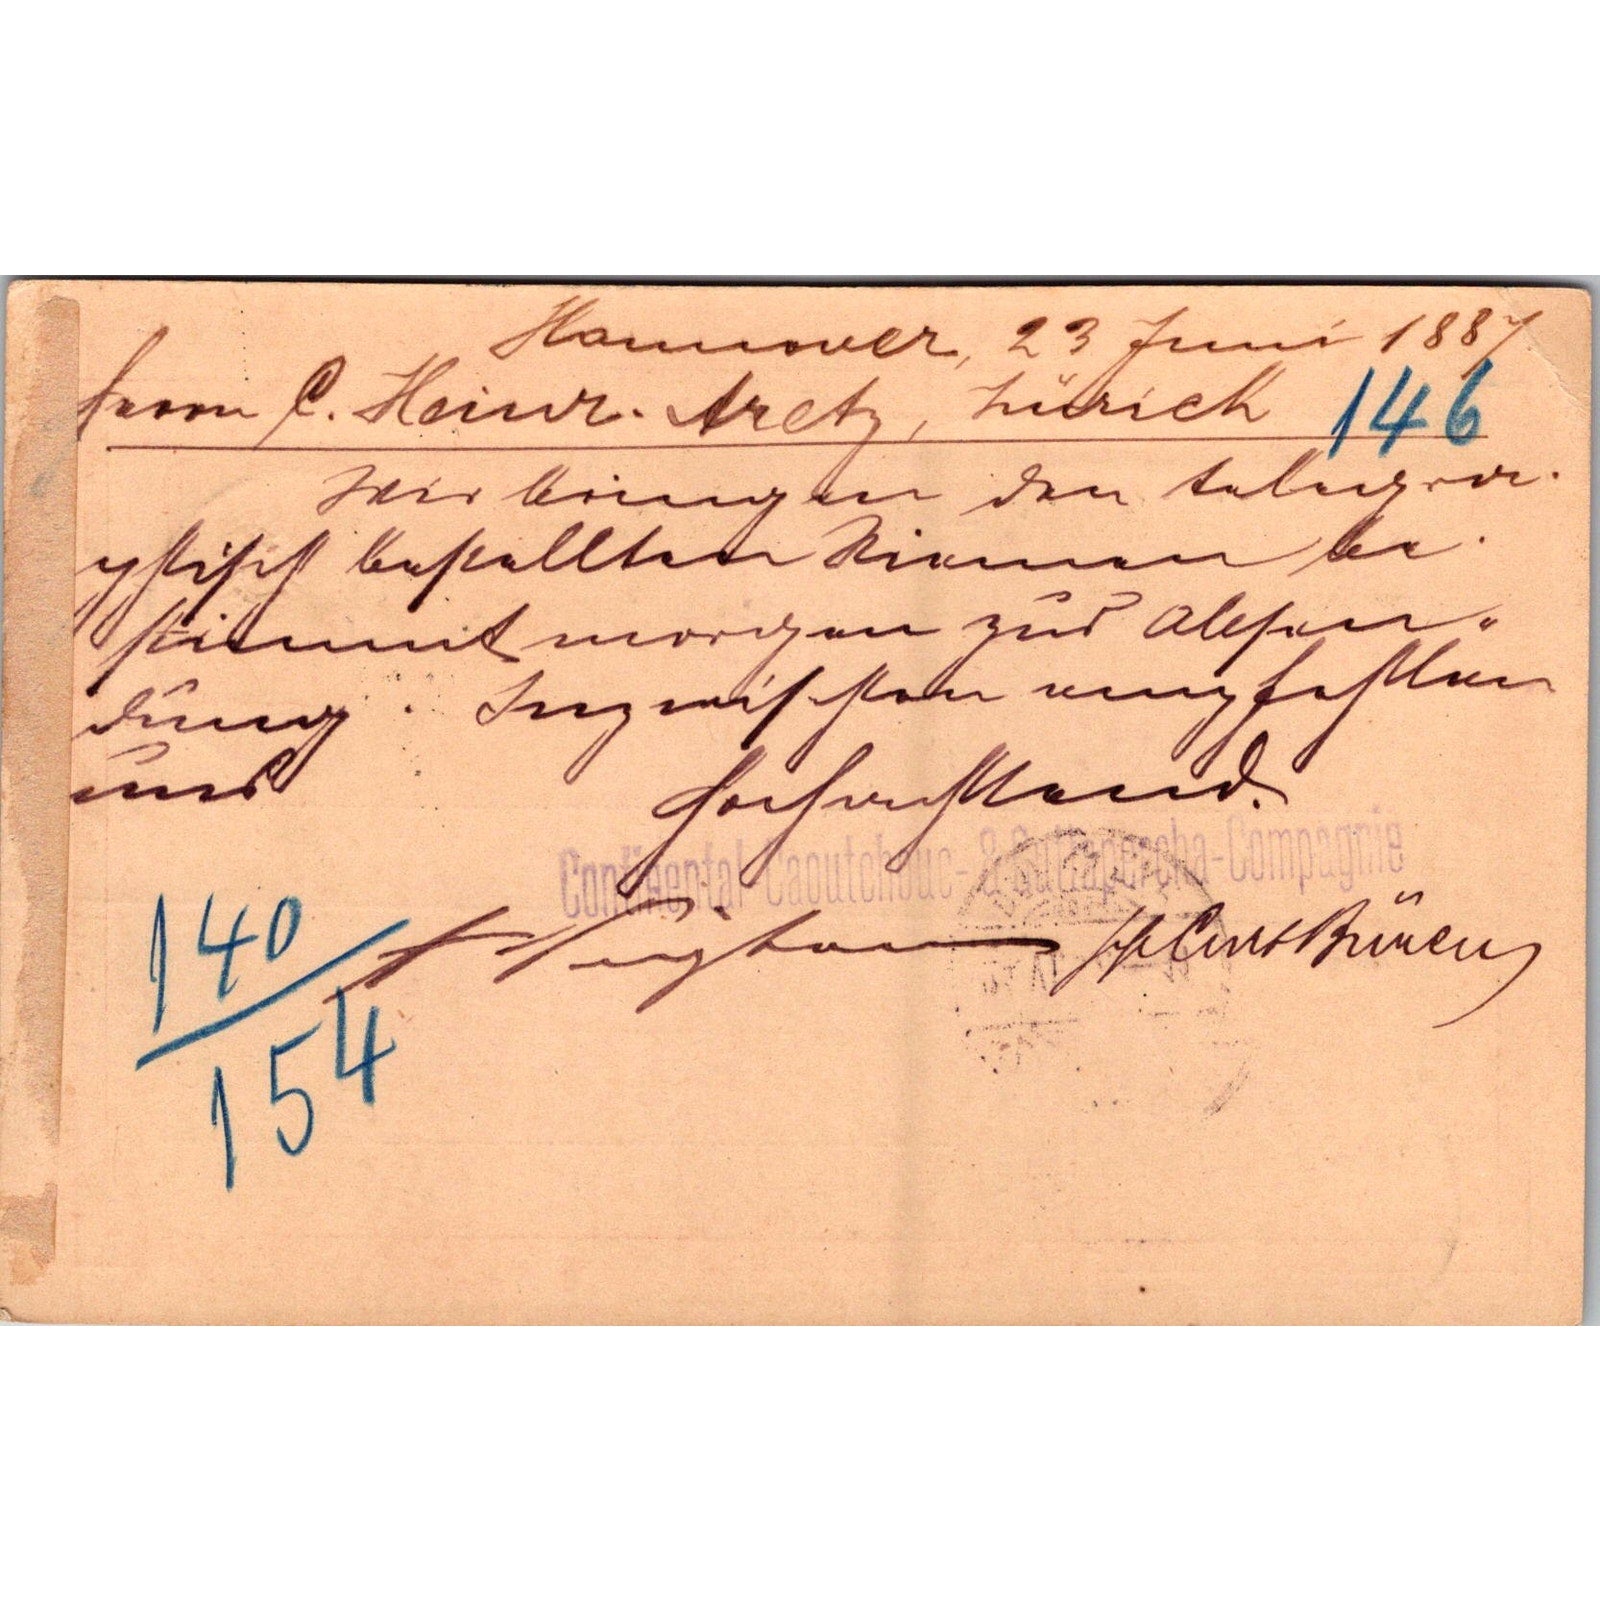 Hannover, 23 Juni 1887
Herrn C. Heinr. Aretz, Zürich 146
Wir bringen den telegra-
phisch bestellten Riemen be-
stimmt morgen zur Absen-
dung. Inzwischen empfehlen
uns Hochachtend.
Continental-Caoutchouc- & Guttapercha-Compagnie
140
154